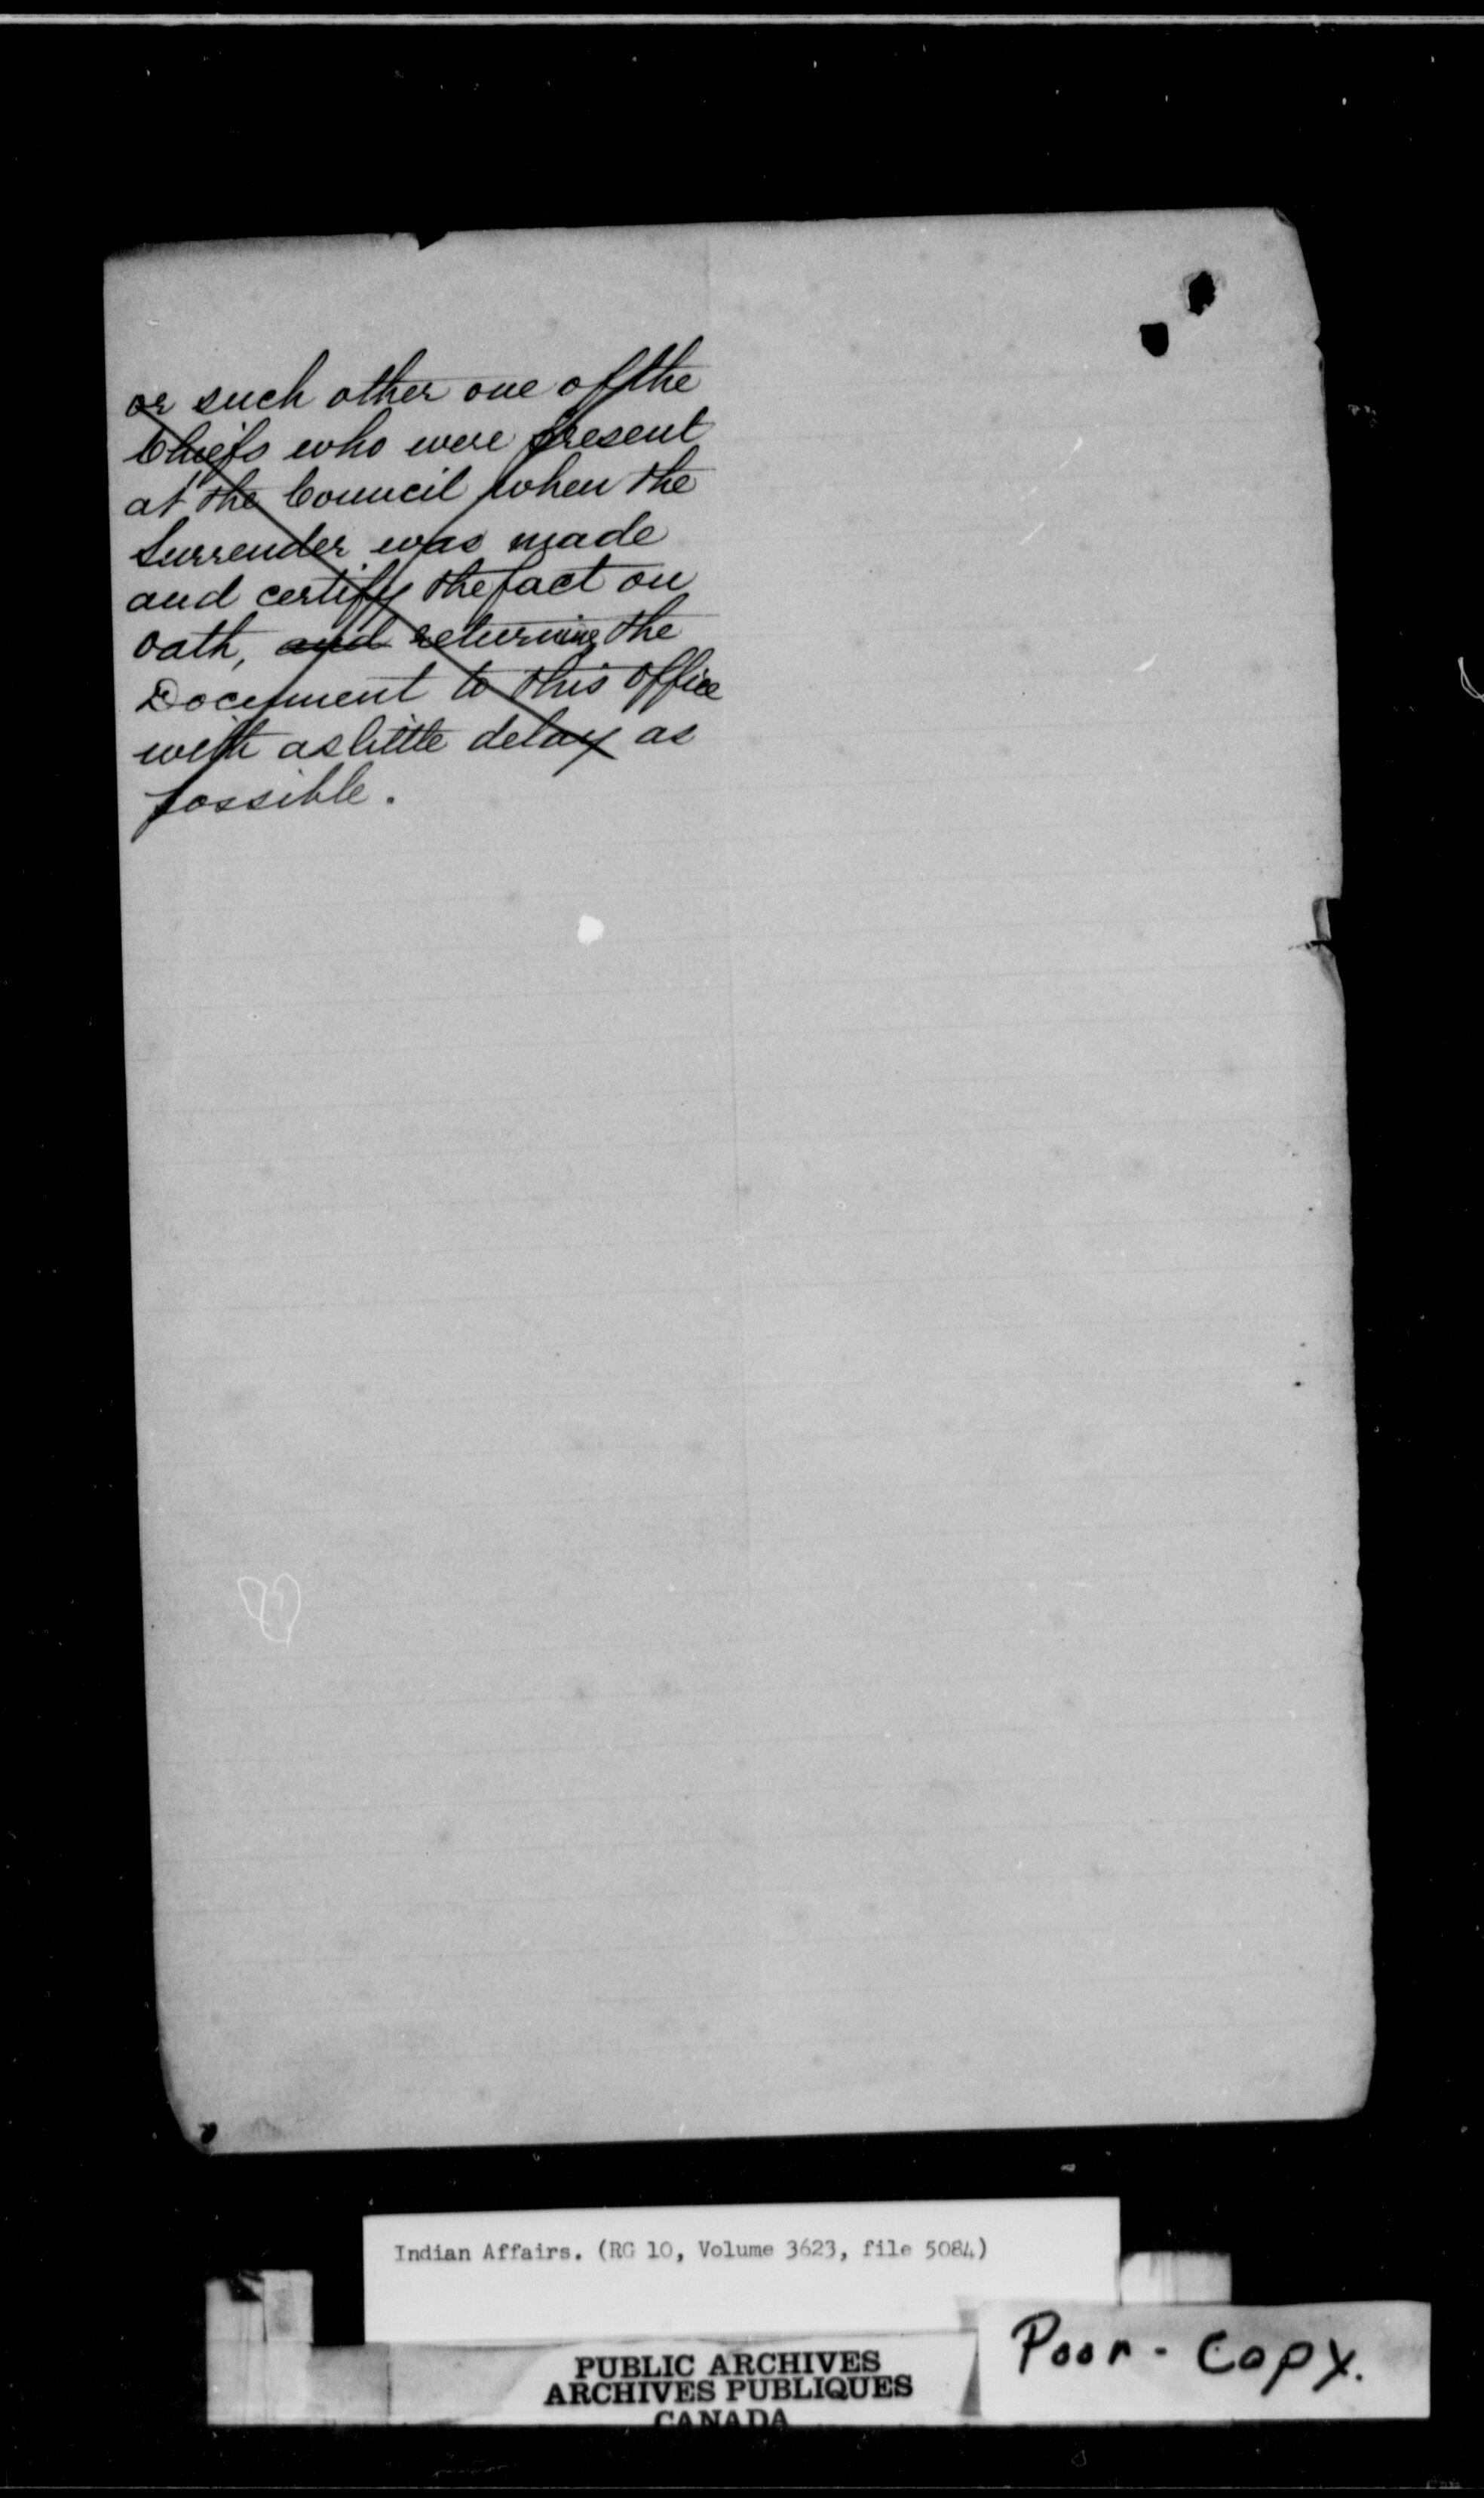 or such other one of the
Chiefs who were present
at the Council when the
Surrender was made
and certify the fact on
oath, and returning the
Document to this Office
with as little delay as
possible.
Indian Affairs. (RG 10, Volume 3623, file 5084)
PUBLIC ARCHIVES
ARCHIVES PUBLIQUES
CANADA
Poor - Copy.